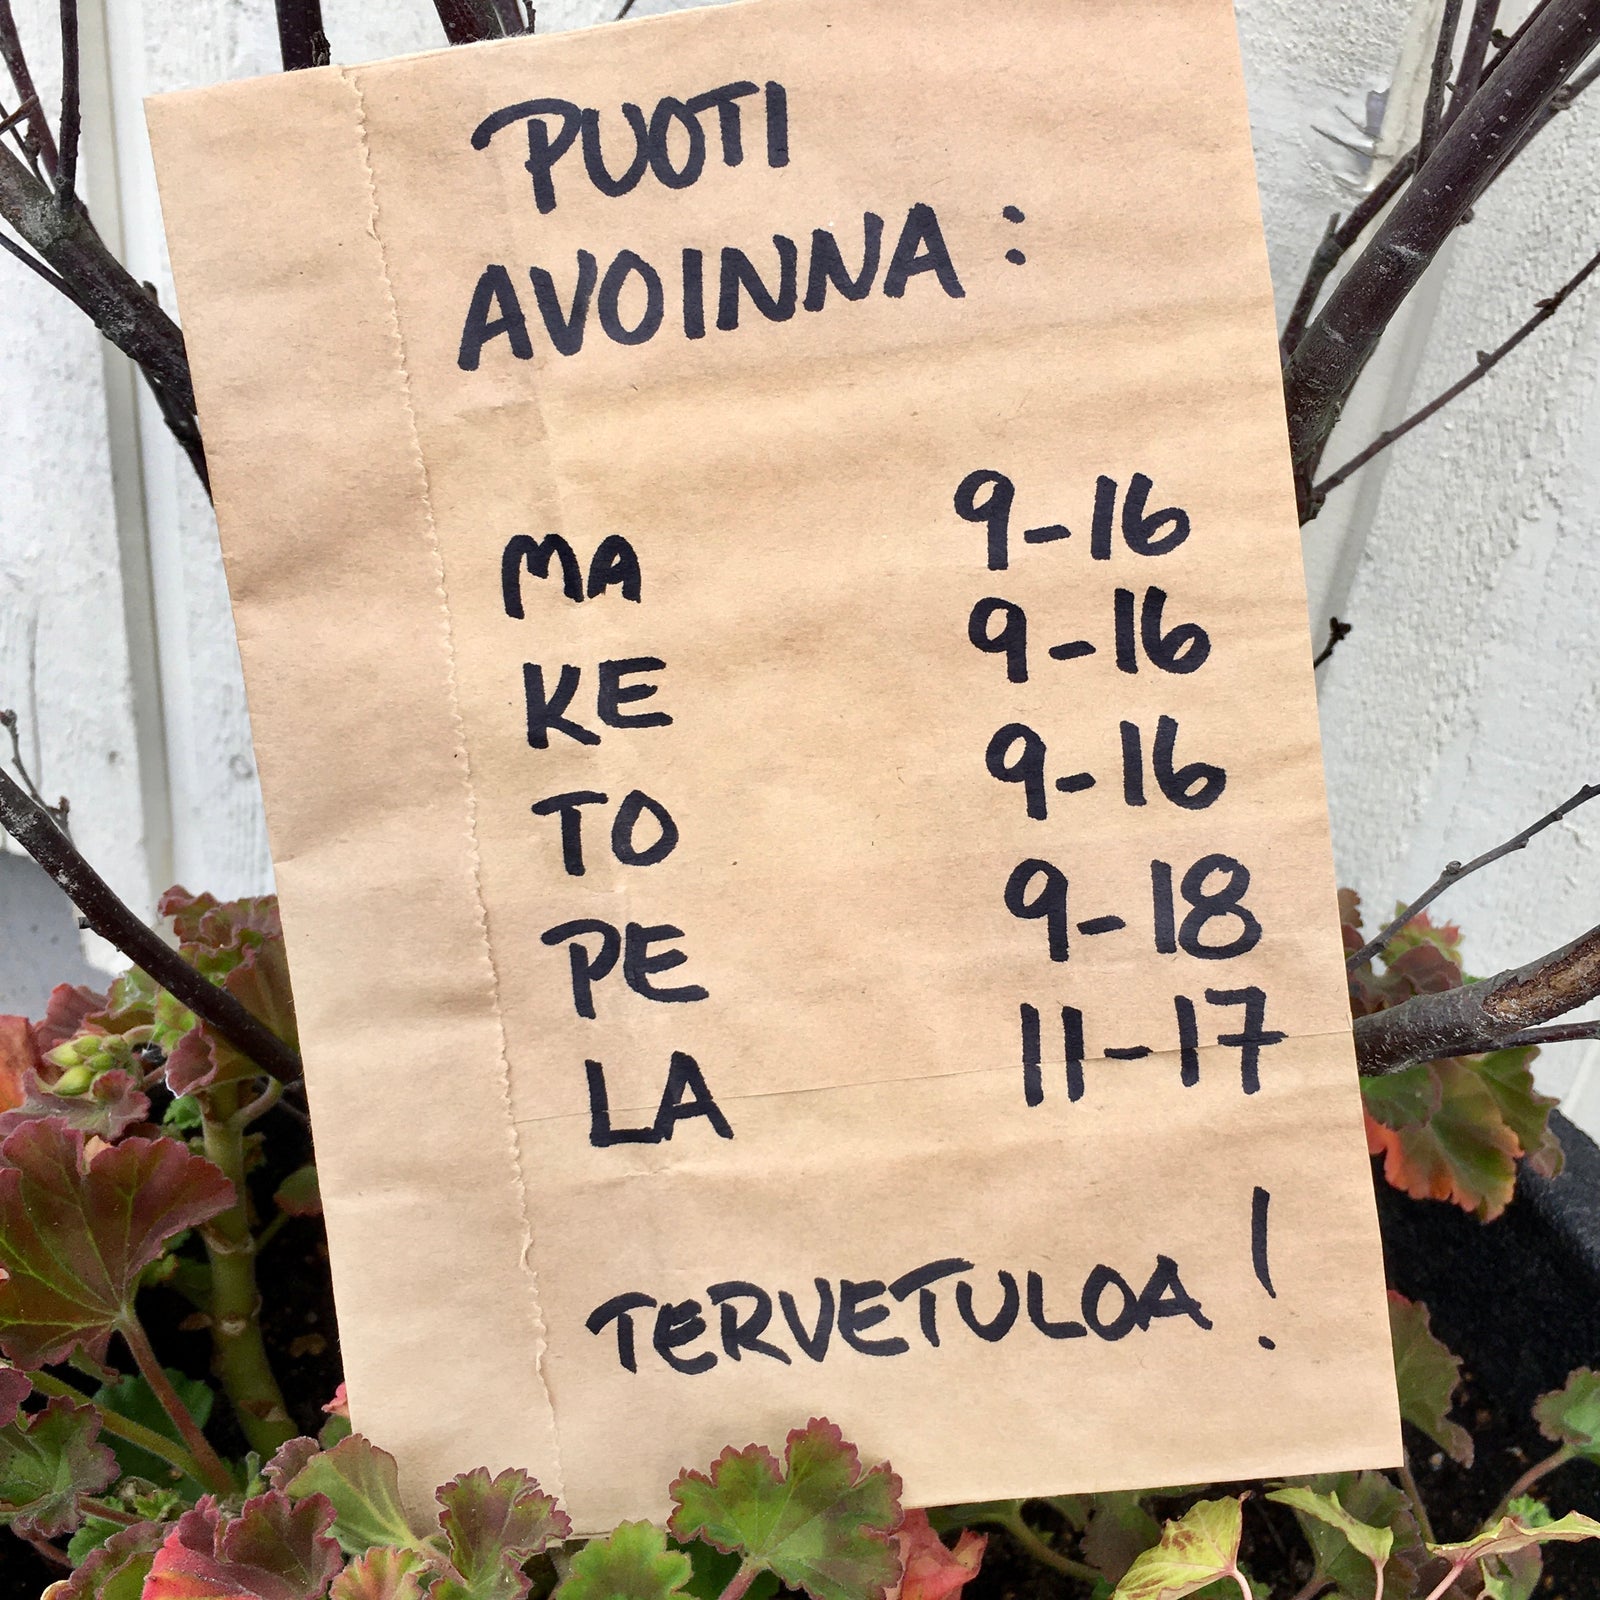 PUOTI
AVOINNA:
MA 9-16
KE 9-16
TO 9-16
PE 9-18
LA 11-17
TERVETULOA!